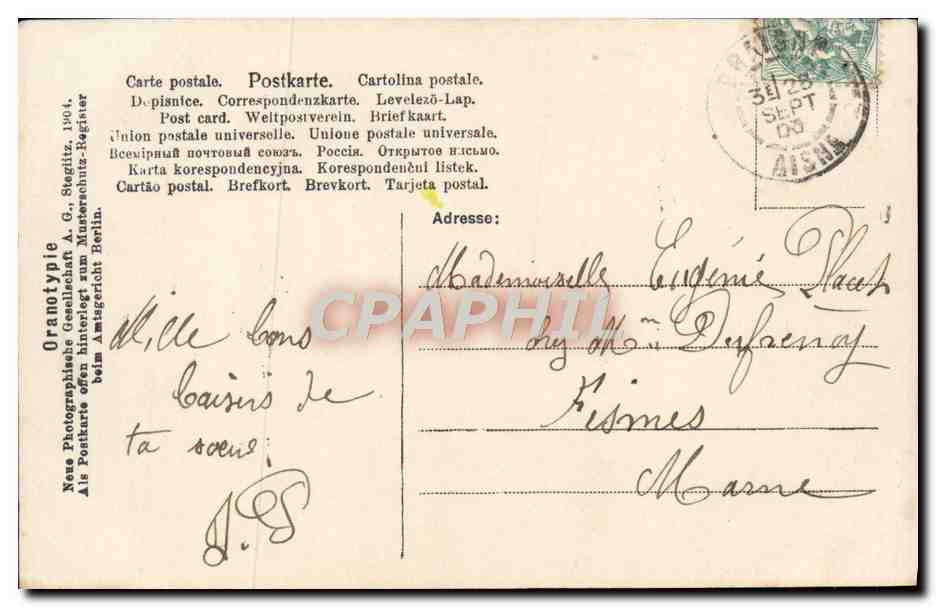 Carte postale. Postkarte. Cartolina postale.
Dopisnice. Correspondenzkarte. Levelező-Lap.
Post card. Weltpostverein. Briefkaart.
Union postale universelle. Unione postale universale.
Всемірный почтовый союзъ. Россія. Открытое письмо.
Karta korespondencyjna. Korespondenční listek.
Cartão postal. Brefkort. Brevkort. Tarjeta postal.
Oranotypie
Neue Photographische Gesellschaft A. G., Steglitz, 1904.
Als Postkarte offen hinterlegt zum Musterschutz-Register
beim Amtsgericht Berlin.
3E 28
SEPT
AISNE
Adresse:
Mademoiselle Eugénie Placet
chez Mme Dufrenoy
Fismes
Marne
Mille bons
baisers de
ta soeur
CPAPHIL